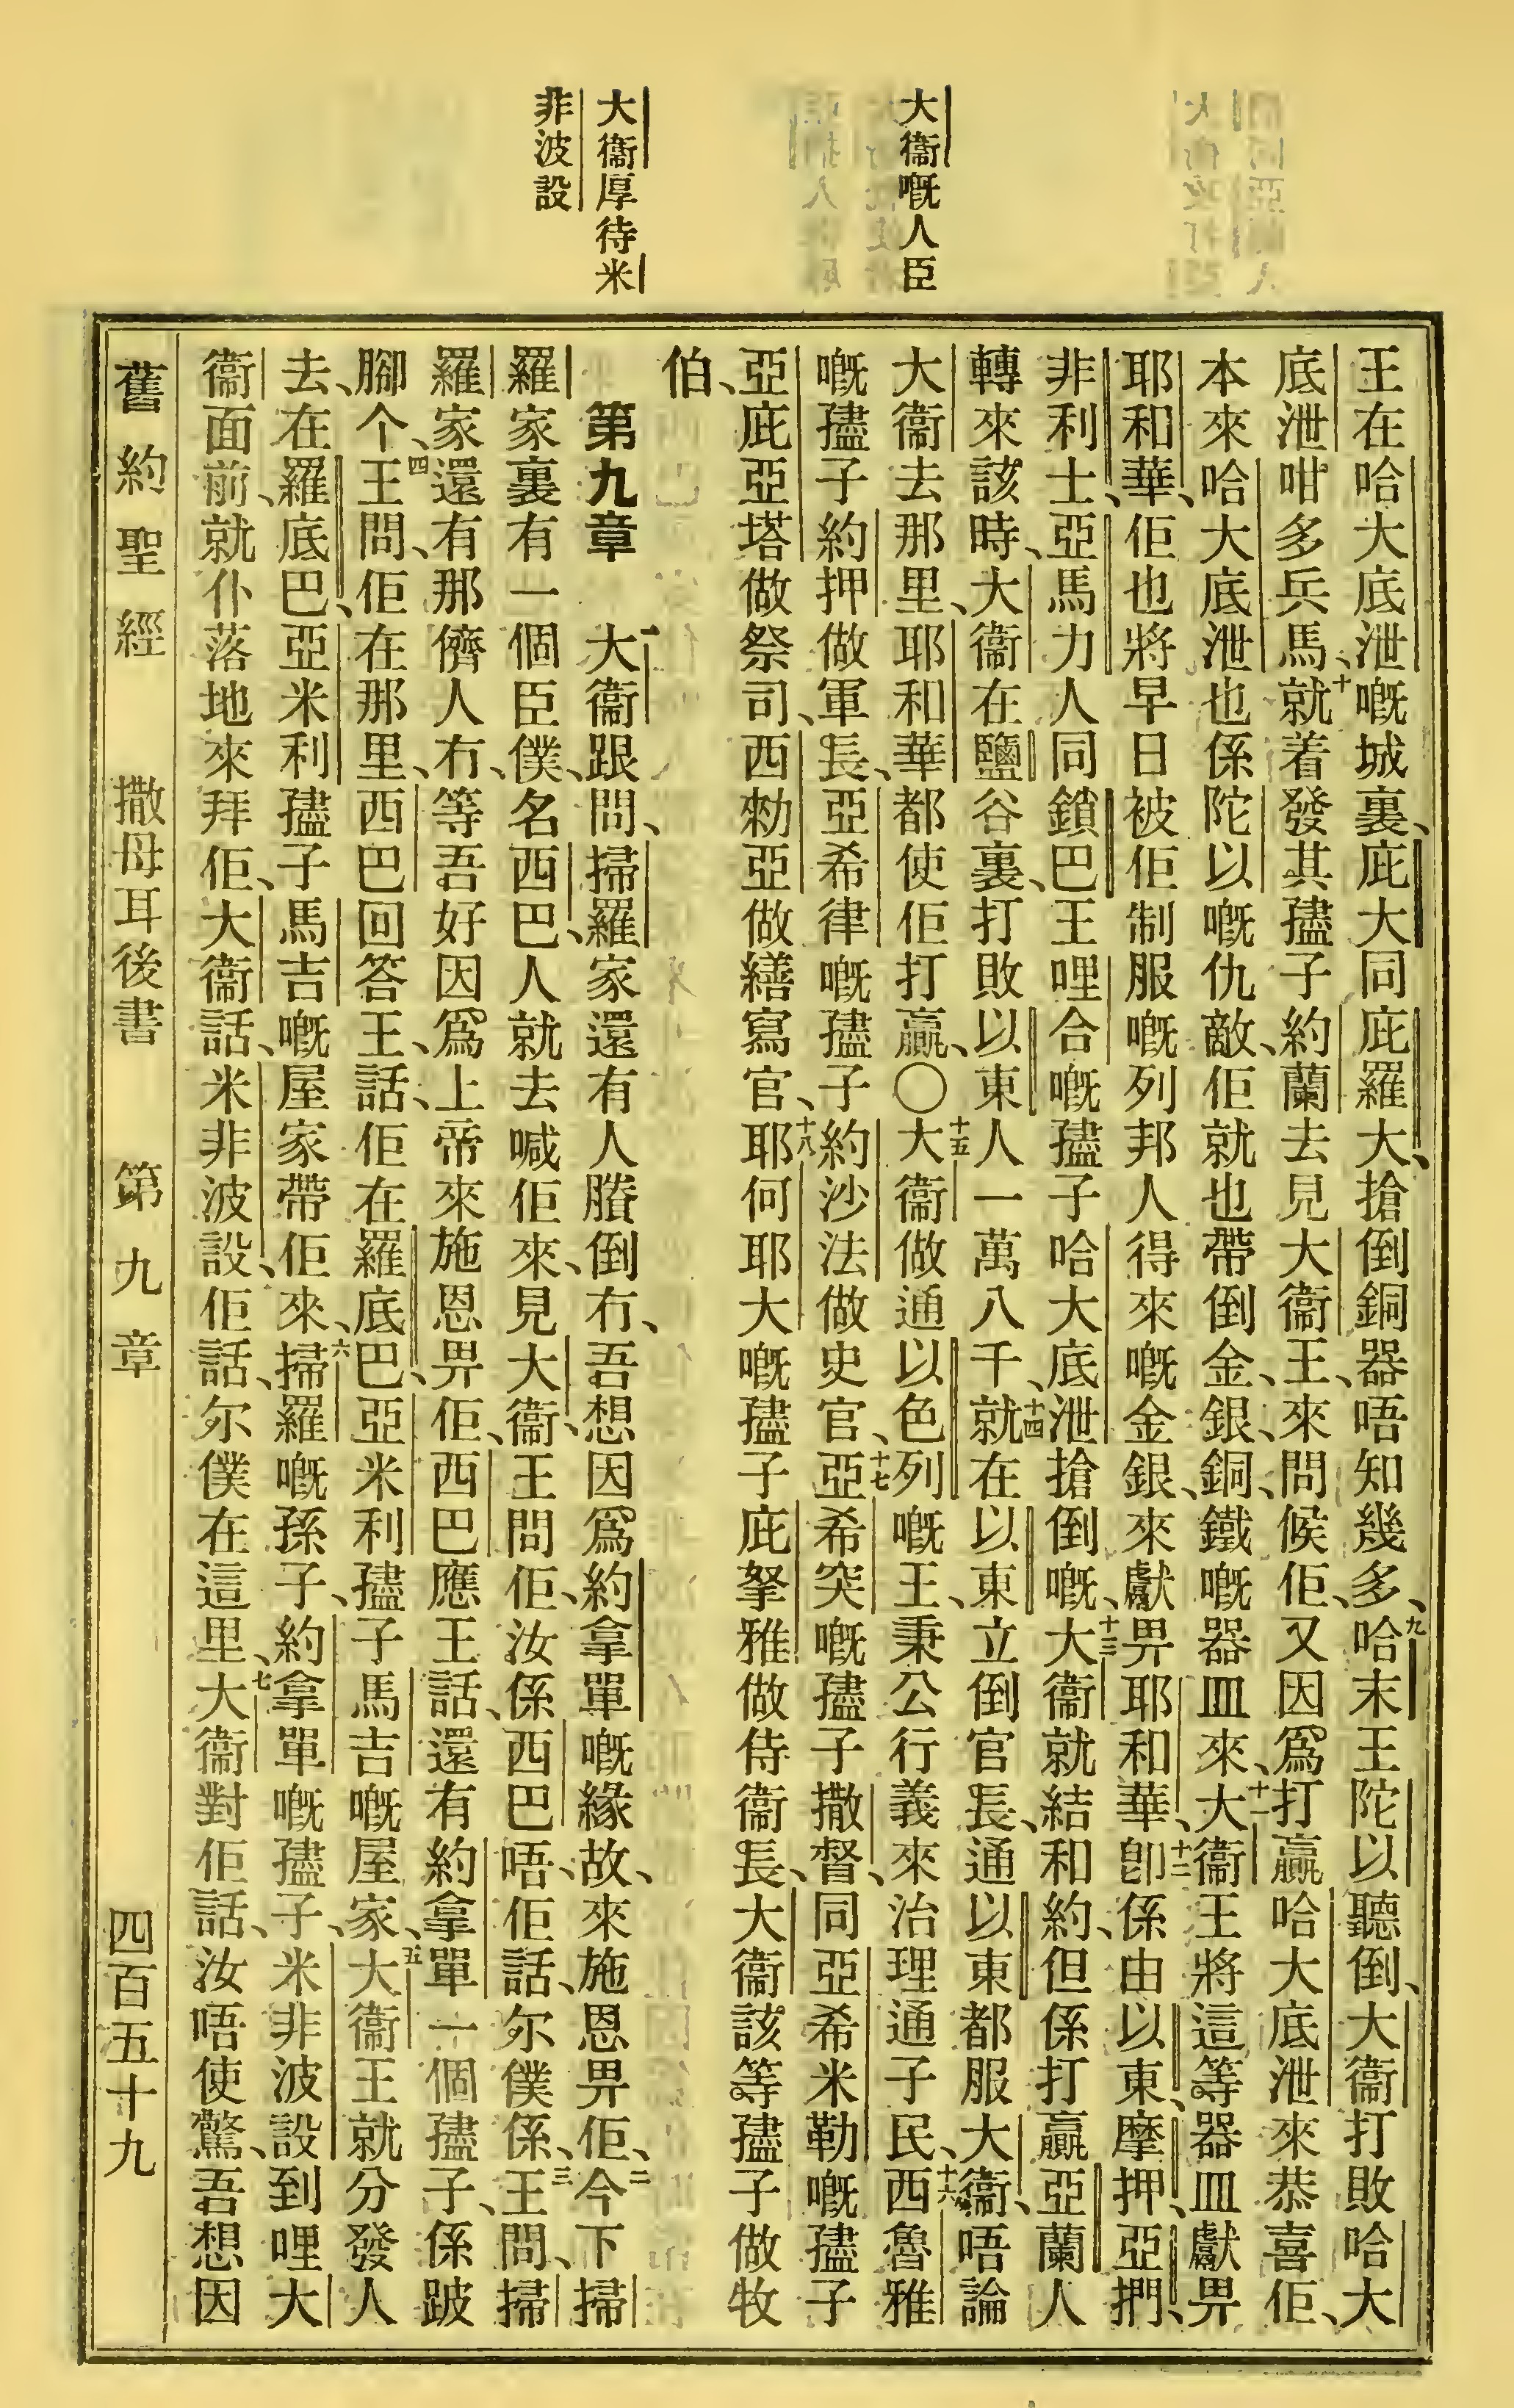 大衞嘅人臣
大衞厚待米
非波設
王在哈大底泄嘅城裏、庇大同庇羅大、搶倒銅器唔知幾多、九哈末王陀以聽倒、大衞打敗哈大
底泄咁多兵馬、十就着發其孻子約蘭去見大衞王、來問候佢、又因爲打贏哈大底泄來恭喜佢、
本來哈大底泄也係陀以嘅仇敵、佢就也帶倒金、銀、銅、鐵嘅器皿來、十一大衞王將這等器皿獻畀
耶和華、佢也將早日被佢制服嘅列邦人得來嘅金銀、來獻畀耶和華、十二卽係由以東、摩押、亞捫、
非利士、亞馬力人同鎖巴王哩合嘅孻子哈大底泄搶倒嘅、十三大衞就結和約、但係打贏亞蘭人
轉來該時、大衞在鹽谷裏、打敗以東人一萬八千、十四就在以東立倒官長、通以東都服大衞、唔論
大衞去那里、耶和華都使佢打贏、〇十五大衞做通以色列嘅王、秉公行義來治理通子民、十六西魯雅
嘅孻子約押做軍長、亞希律嘅孻子約沙法做史官、十七亞希突嘅孻子撒督、同亞希米勒嘅孻子
亞庇亞塔做祭司、西勑亞做繕寫官、十八耶何耶大嘅孻子庇拏雅做侍衞長、大衞該等孻子做牧
伯、
第九章 一大衞跟問、掃羅家還有人賸倒冇、吾想因爲約拿單嘅緣故、來施恩畀佢、二今下掃
羅家裏有一個臣僕、名西巴、人就去喊佢來、見大衞、王問佢、汝係西巴唔、佢話、尔僕係、三王問、掃
羅家還有那儕人冇、等吾好因爲上帝來施恩畀佢、西巴應王話、還有約拿單一個孻子、係跛
腳个、四王問、佢在那里、西巴回答王、話、佢在羅底巴、亞米利孻子馬吉嘅屋家、五大衞王就分發人
去、在羅底巴、亞米利孻子馬吉嘅屋家帶佢來、六掃羅嘅孫子、約拿單嘅孻子、米非波設到哩大
衞面前、就仆落地來拜佢、大衞話、米非波設、佢話、尔僕在這里、七大衞對佢話、汝唔使驚、吾想因
舊約聖經 撒母耳後書 第九章 四百五十九